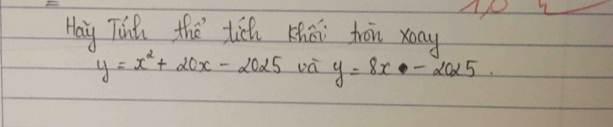 1,0
Hãy Tính thể tích khối tròn xoay
y = x² + 20x - 2025 và y = 8x - 2025.